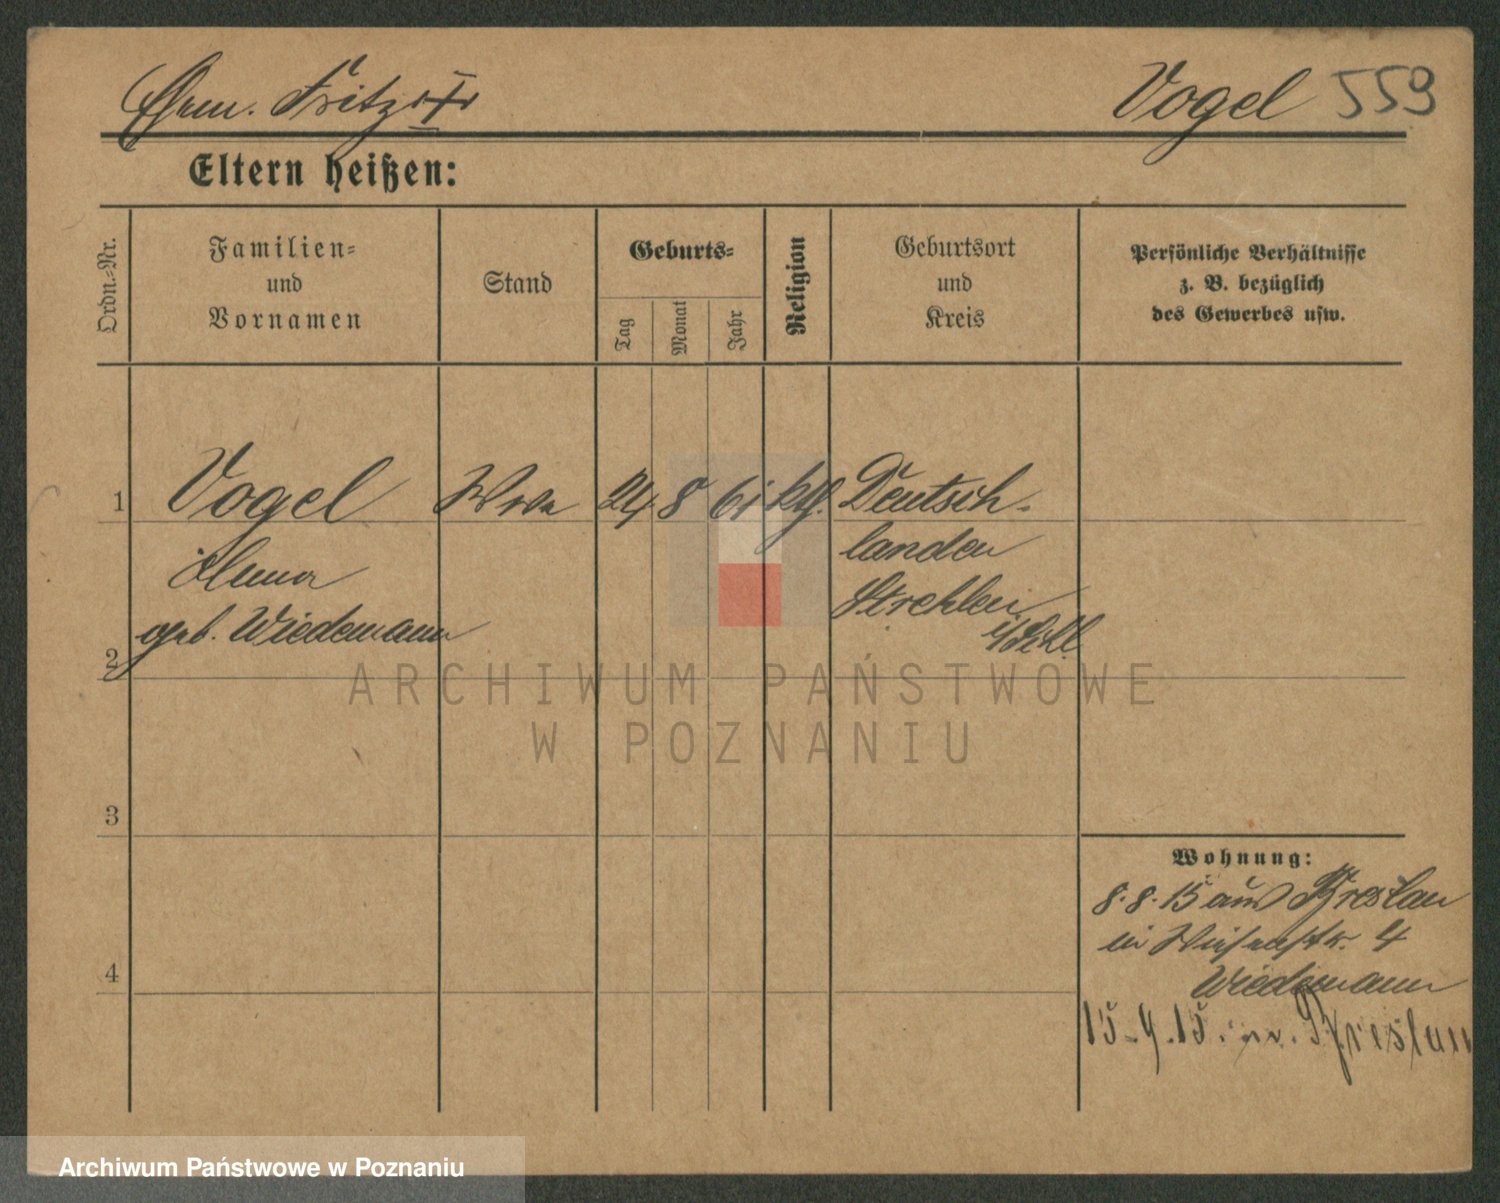 Ehem. Fritz †
Vogel 559
Eltern heißen:
Ordn.-Nr.
Familien-
und
Vornamen
Stand
Geburts-
Tag
Monat
Jahr
Religion
Geburtsort
und
Kreis
Persönliche Verhältnisse
z. B. bezüglich
des Gewerbes usw.
1 Vogel Wwe 24 8 61 kth. Deutsch-
landen
Strehlen
i/Schl.
geb. Wiedemann
2
3
4
Wohnung:
8.8.15 aus Breslau
4
Wiedemann
15.9.15. n. Breslau
ARCHIWUM PAŃSTWOWE
W POZNANIU
Archiwum Państwowe w Poznaniu